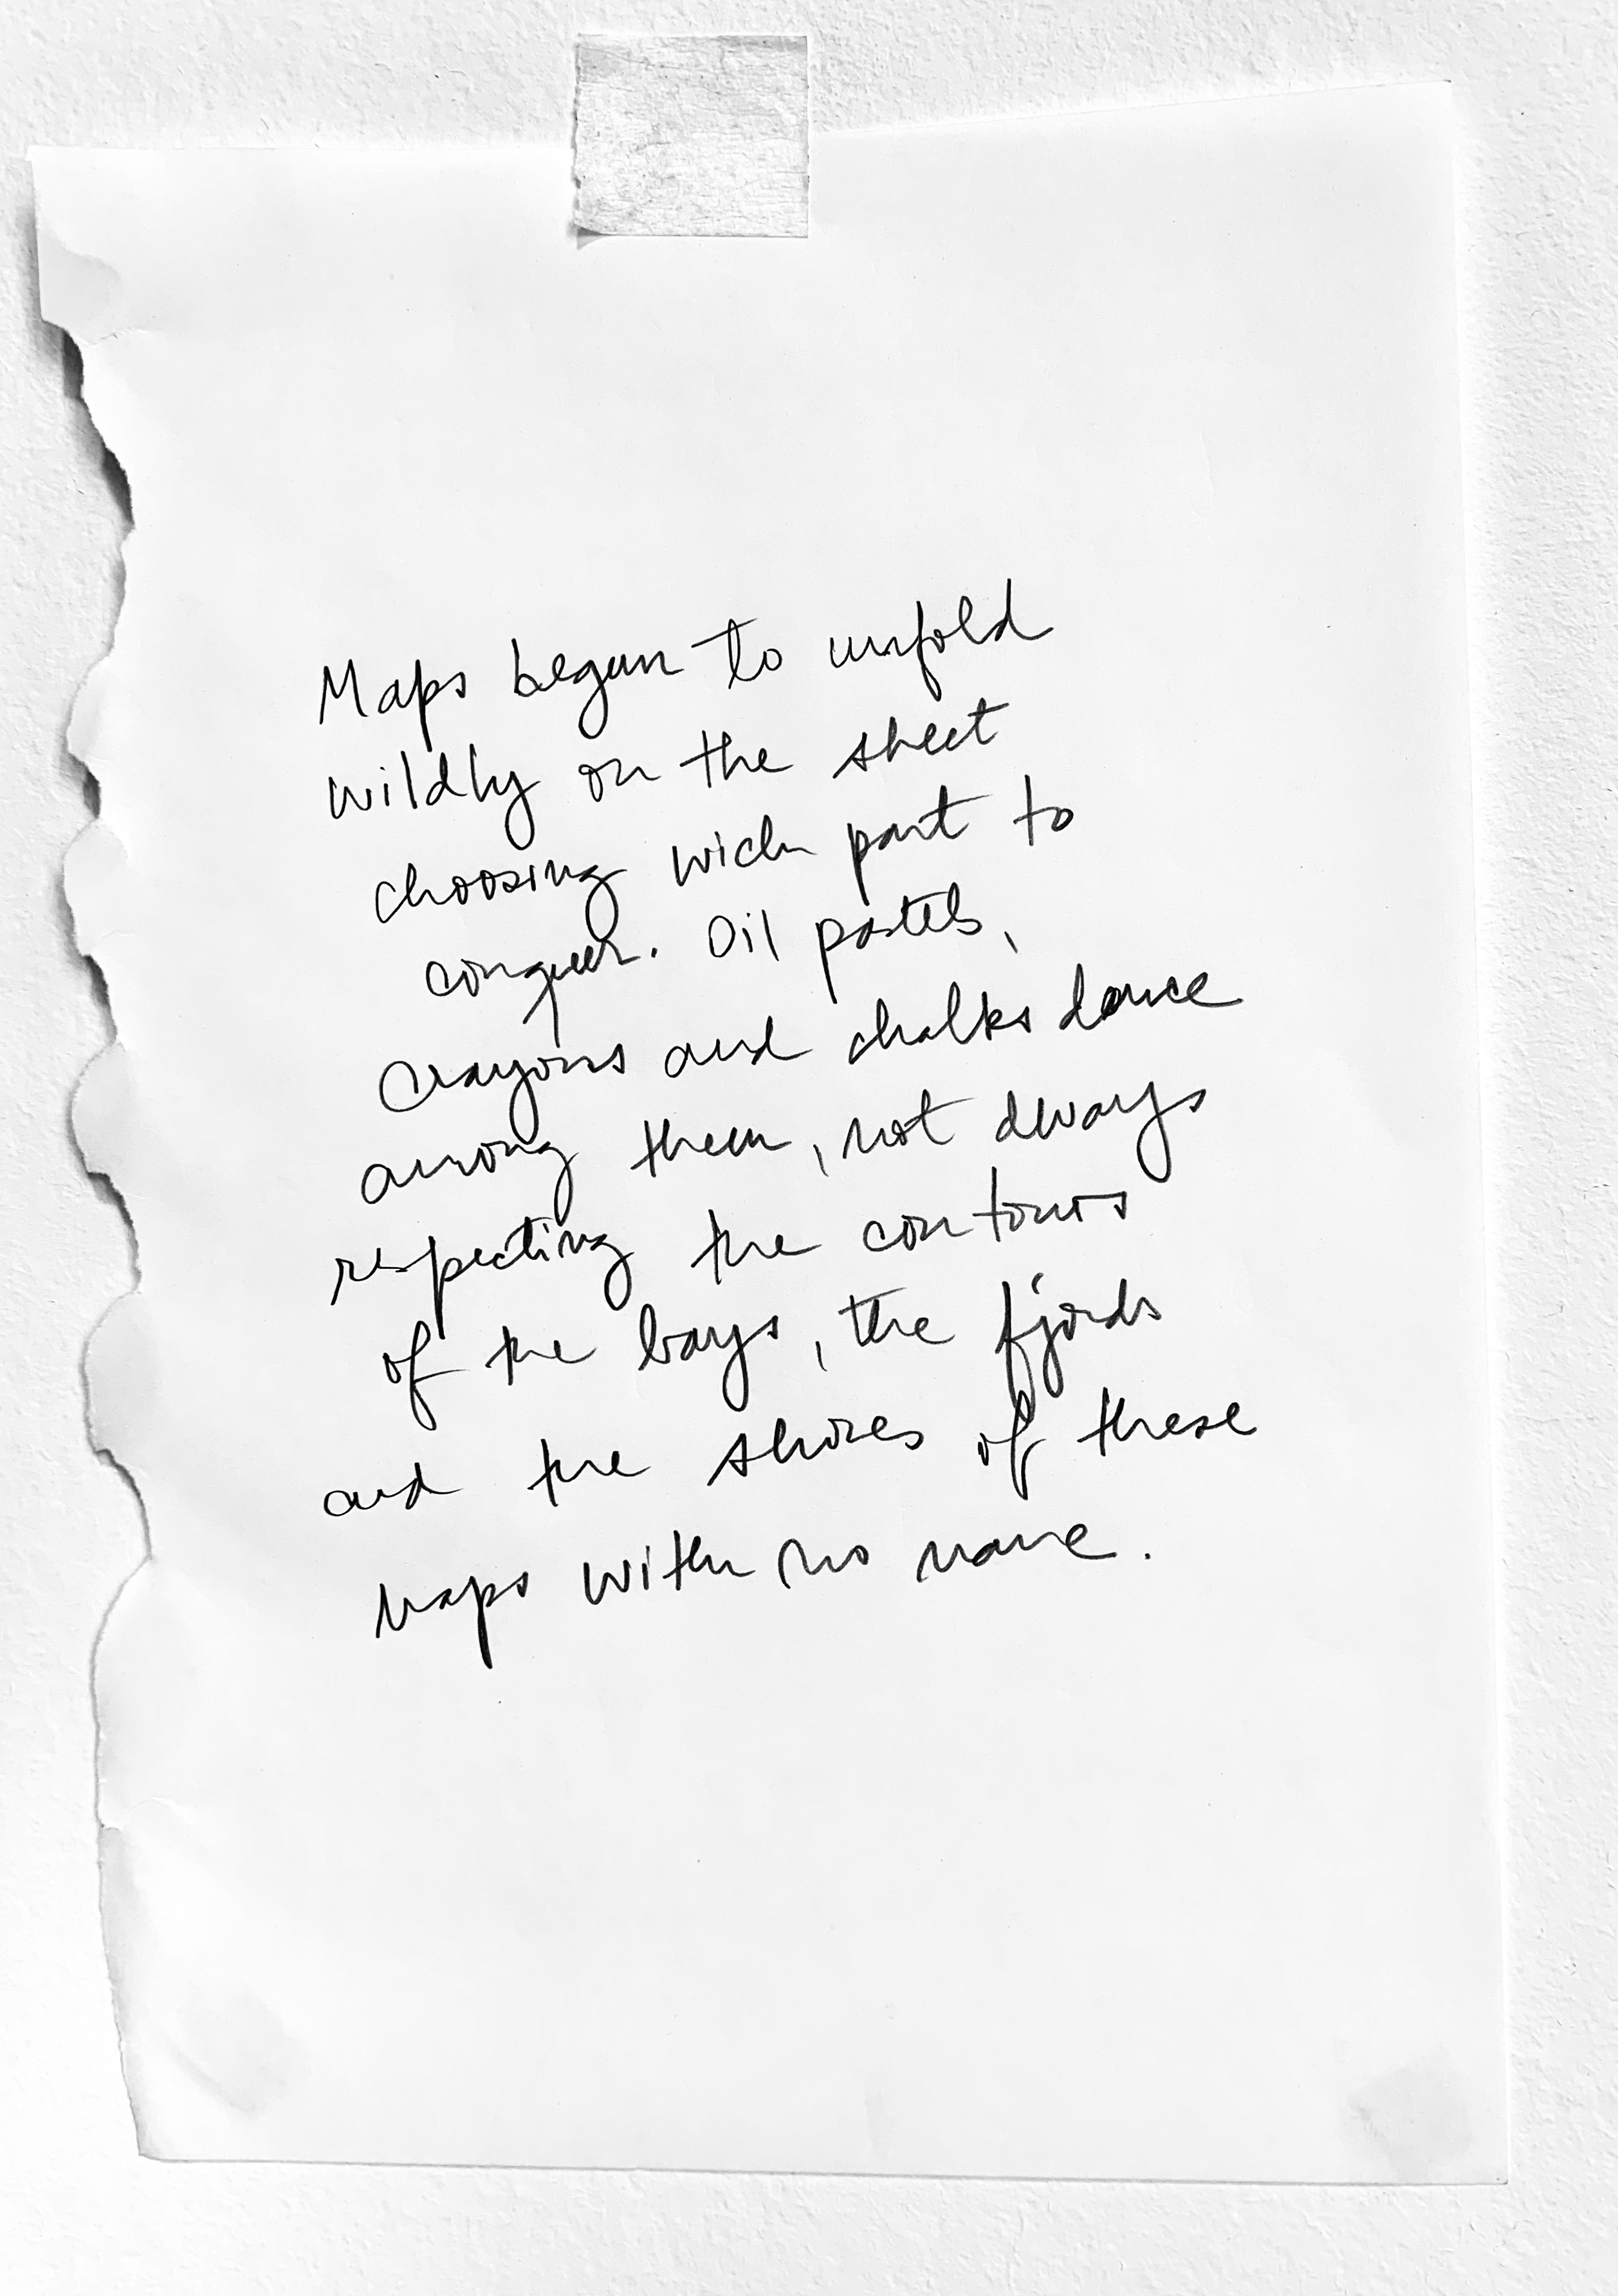 Maps begun to unfold
wildly on the sheet
choosing wich part to
conquer. Oil pastels,
crayons and chalks dance
among them, not always
respecting the contours
of the bays, the fjords
and the shores of these
maps with no name.